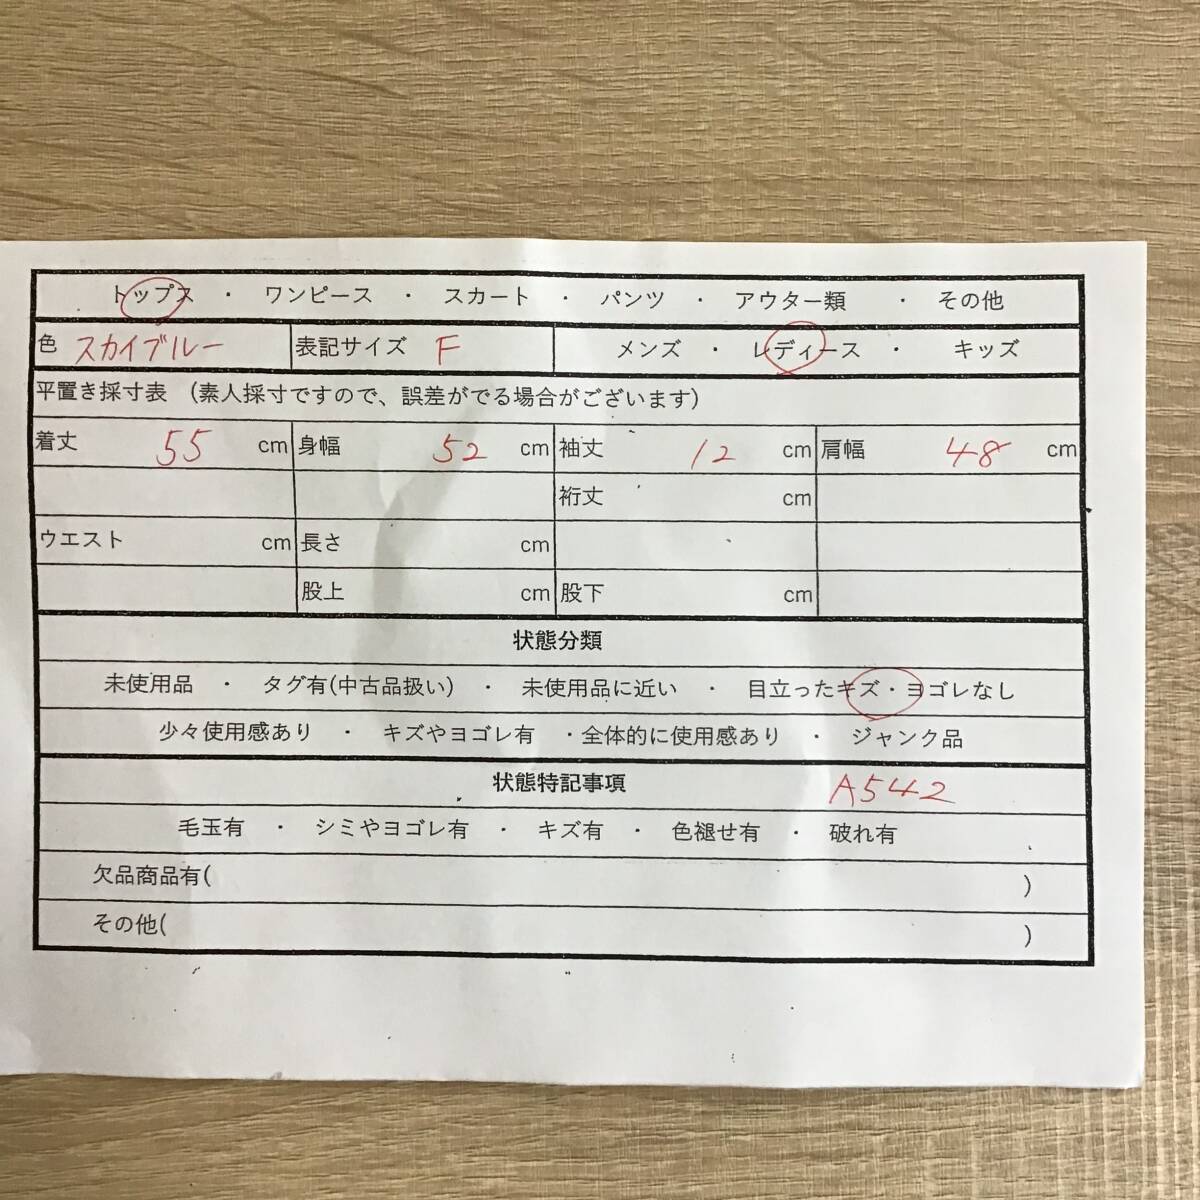 トップス ・ ワンピース ・ スカート ・ パンツ ・ アウター類 ・ その他
色 スカイブルー 表記サイズ F メンズ ・ レディース ・ キッズ
平置き採寸表 （素人採寸ですので、誤差がでる場合がございます）
着丈 55 cm 身幅 52 cm 袖丈 12 cm 肩幅 48 cm
裄丈 cm
ウエスト cm 長さ cm
股上 cm 股下 cm
状態分類
未使用品 ・ タグ有(中古品扱い) ・ 未使用品に近い ・ 目立ったキズ・ヨゴレなし
少々使用感あり ・ キズやヨゴレ有 ・全体的に使用感あり ・ ジャンク品
状態特記事項 A542
毛玉有 ・ シミやヨゴレ有 ・ キズ有 ・ 色褪せ有 ・ 破れ有
欠品商品有( )
その他( )